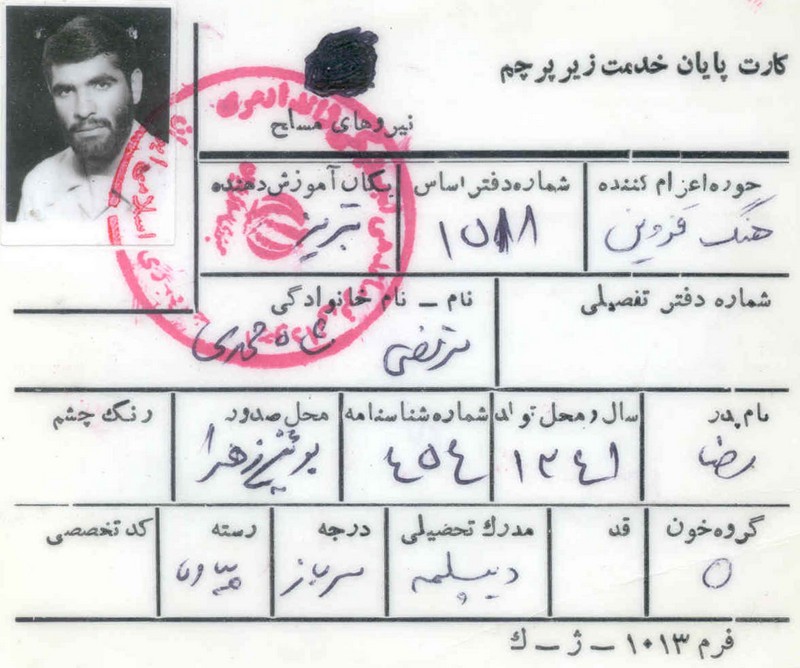 کارت پایان خدمت زیر پرچم
نیروهای مسلح
حوزه اعزام کننده
شماره دفتر اساس
یگان آموزش دهنده
هنگ قزوین
تبریز
شماره دفتر تفصیلی
نام ـ نام خانوادگی
مرتضی شاه محمدی
نام پدر
سال و محل تولد
شماره شناسنامه
محل صدور
رنگ چشم
رضا
۱۳۴۱
۴۵۴
بوئین زهرا
گروه خون
قد
مدرک تحصیلی
درجه
رسته
کد تخصصی
O
دیپلمه
سرباز
فرم ۱۰۱۳ ـ ژ ـ ک